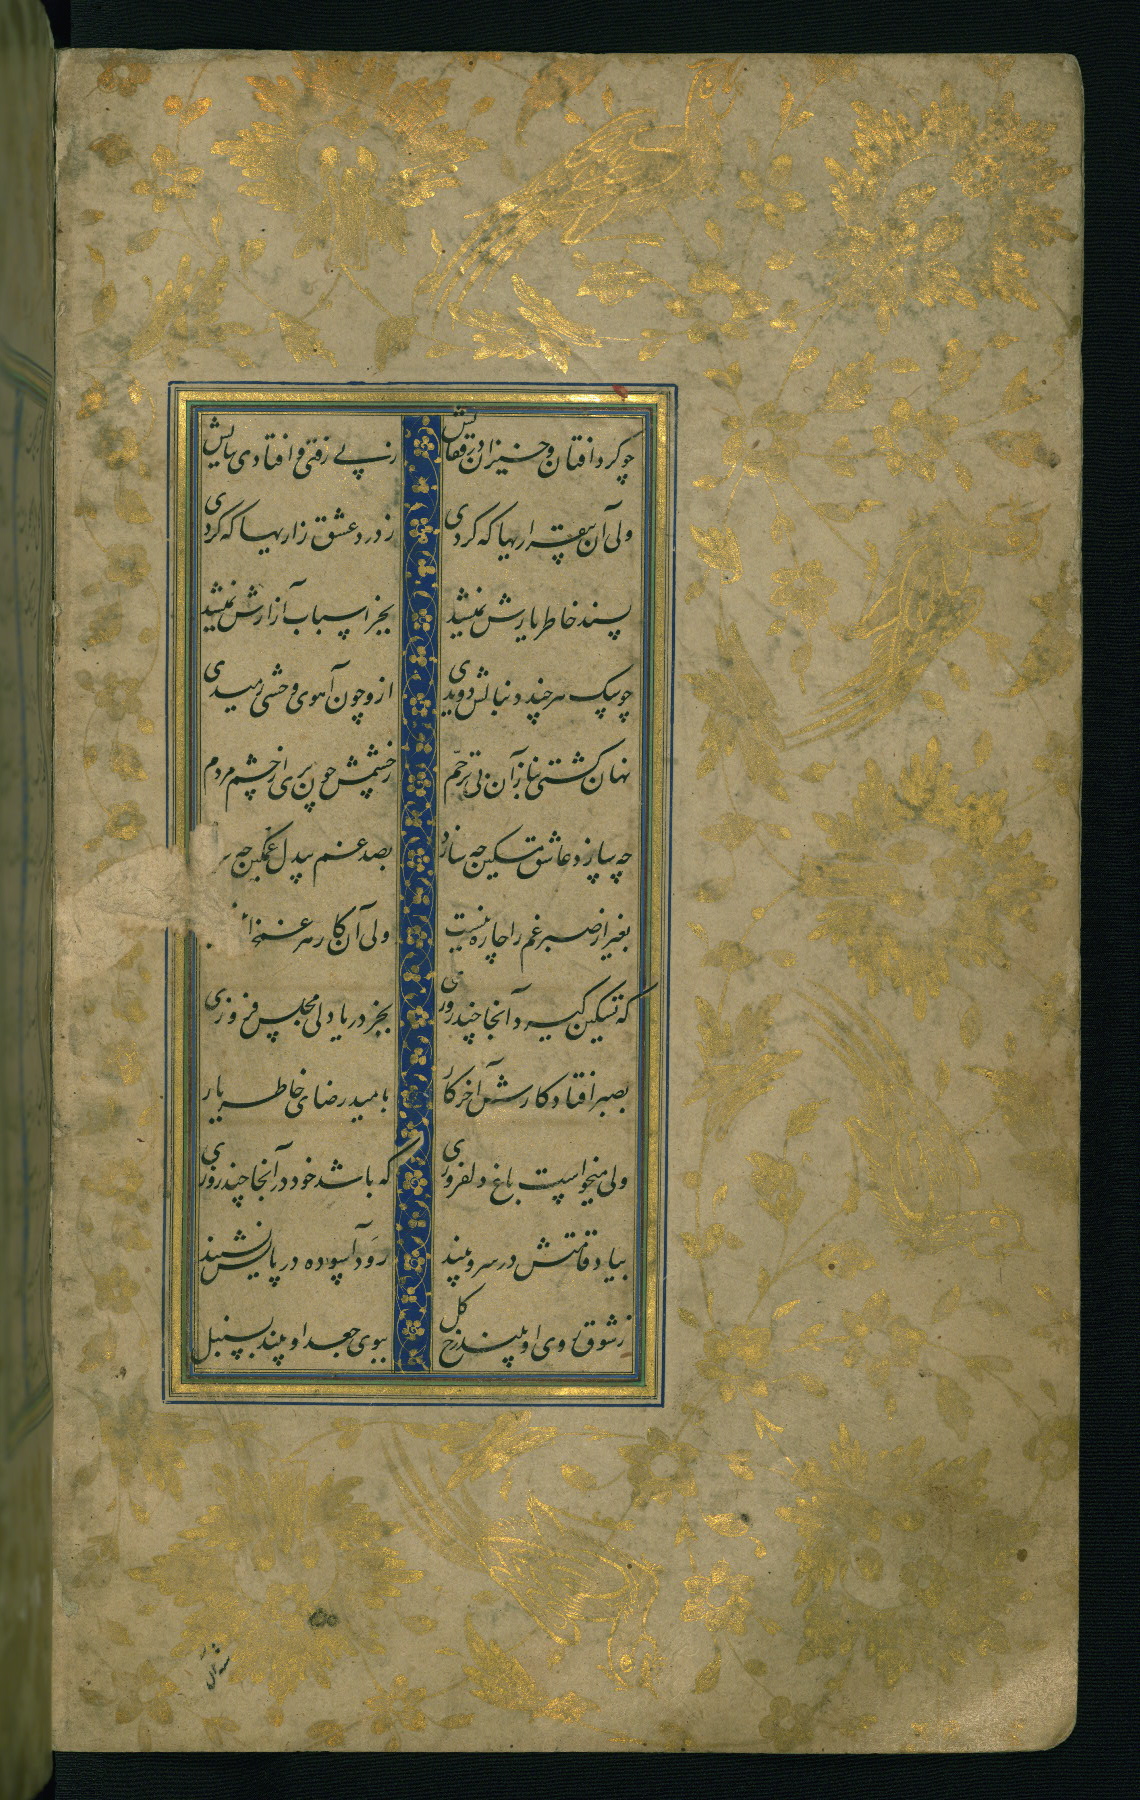 چو کرد افتان و خیزان در قفایش ز پی رفتی و افتادی بپایش
ولی آن بیقراریها که کردی ز درد عشق زاریها که کردی
پسند خاطر یارش نمیشد بجز اسباب آزارش نمیشد
چو سک هر چند دنبالش دویدی ازو چون آهوی وحشی رمیدی
نهان کشتی بناز آن بی ترحم ز خشمش چون پری از چشم مردم
چه سازد عاشق مسکین چه سازد بصد غم بیدل غمکین چه
بغیر از صبر غم را چاره نیست ولی آن کار هر
که تسکین کیرد آنجا چند روزی بجز در یاد لی مجلس فروزی
بصبر افتاد کارش آخر کار بامید رضای خاطر یار
ولی میخواست باغ دلفروزی که باشد خود در آنجا چند روزی
بیاد قامتش در سرو بیند رود آسوده در پایش نشیند
ز شوق روی او بیند رخ کل ببوی جعد او بیند بسنبل